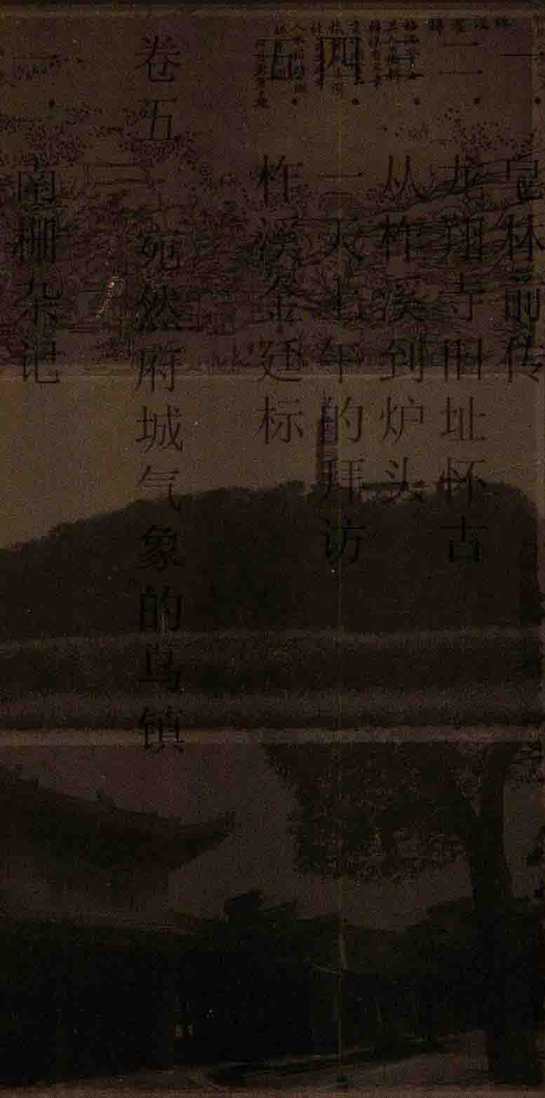 一、皂林前传
二、龙翔寺旧址怀古
三、从柞溪到炉头
四、一天七年的拜访
五、柞溪金廷标
卷五 宛然府城气象的乌镇
一、南栅杂记